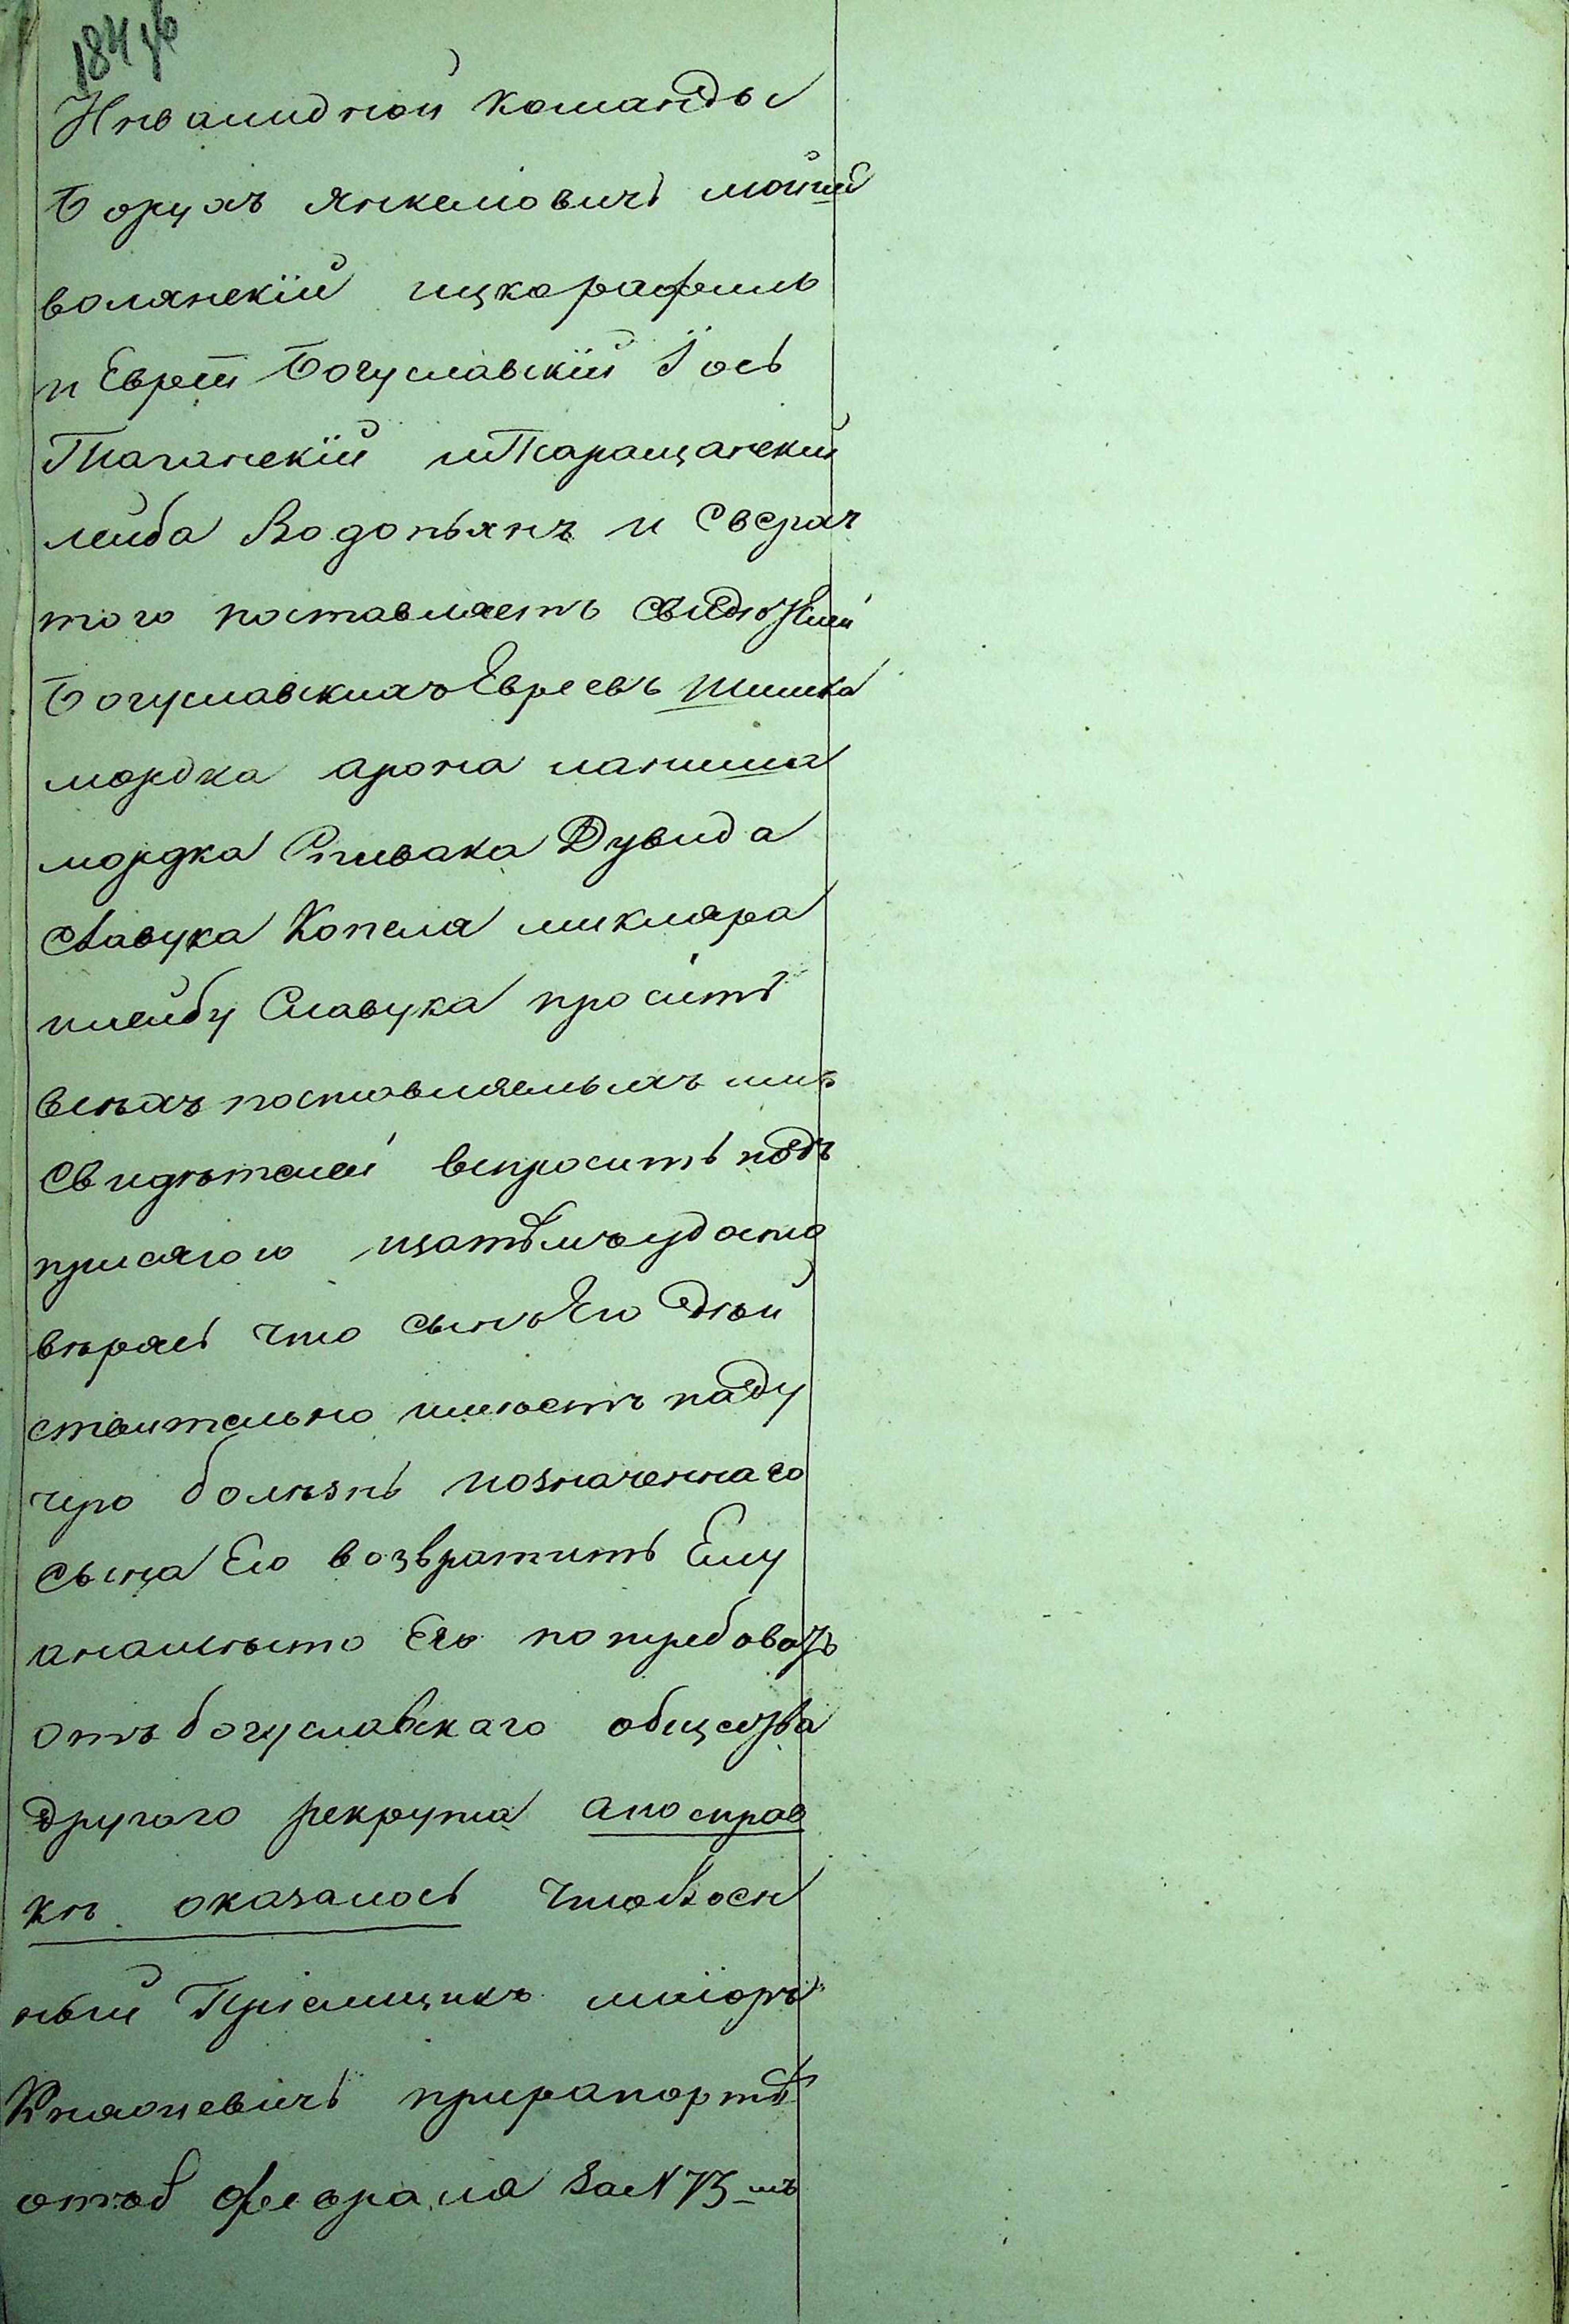 184 об
Инвалидной Команды
Борухъ Янкелiовичъ
волянскій ицкорафаиль
и Еврей Богуславскій Іось
Таганскій иТаращанскій
лейба Водопьянъ и Сверхъ
того поставляетъ Свидѣтелей
Богуславскихъ Евреевъ Шимка
мордка арона
мордка Спивака Дувида
Славука Копеля шкляра
илейбу Славука просить
всѣхъ поставляемыхъ имъ
Свидѣтелей вспросить подъ
присягою изатѣмъ удосто
вѣрясь что сынъ Его дѣй
ствительно имѣетъ паду
чую болѣзнь иозначеннаго
сына Его возвратить Ему
анамѣсто Его потребовать
отъ богуславскаго общества
другаго рекрута апосправ
кѣ оказалось чтоВоен
ный Пріемщикъ маіоръ
прирапортѣ
февраля За N 73 мъ